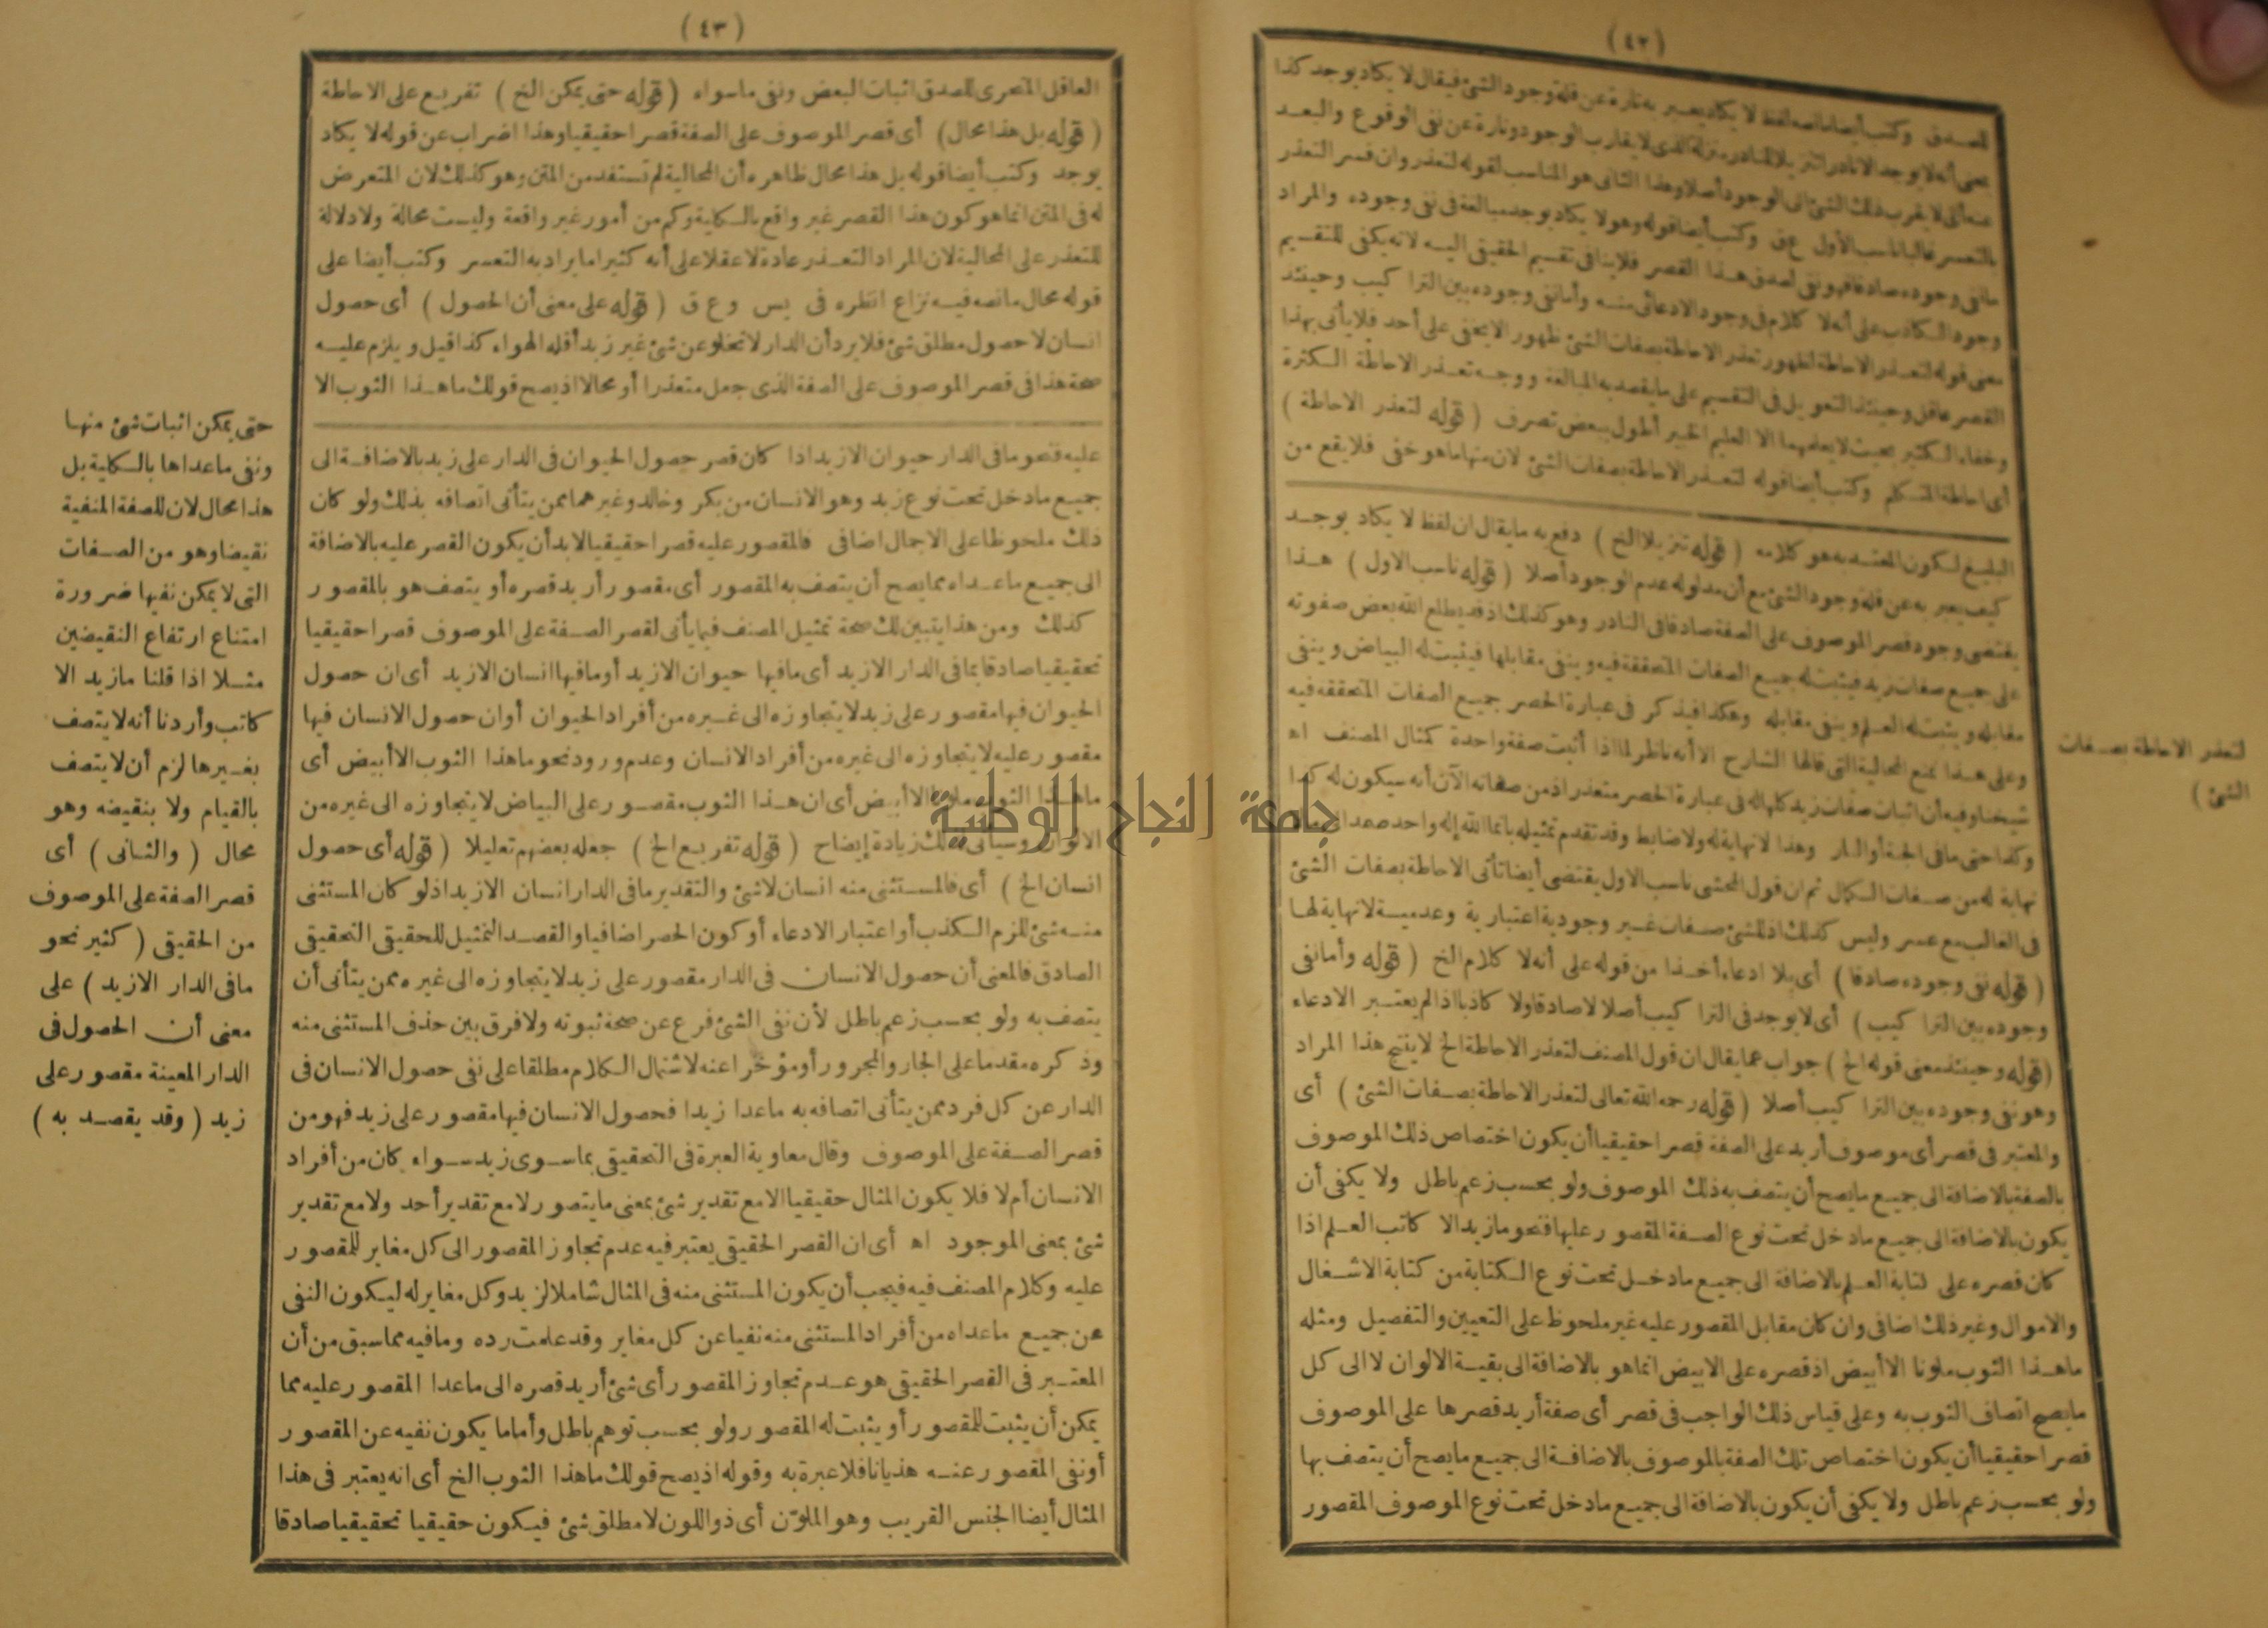 (٤٢)
للصدق وكتب أيضا مانصه لفظ لا يكاد يعبر به تارة عن قلة وجود الشئ فيقال لا يكاد يوجد كذا
بمعنى أنه لا يوجد الا نادرا تنزيلا للنادر منزلة الذى لا يقارب الوجود وتارة عن نفى الوقوع والبعد
عنه أى لا يقرب ذلك الشئ الى الوجود أصلا وهذا الثانى هو المناسب لقوله لتعذر وان فسر التعذر
بالتعسر غالبا ناسب الأول ع ق وكتب أيضا قوله وهو لا يكاد يوجد مبالغة فى نفى وجوده والمراد
مانفى وجوده صادقا فهو نفى لصدق هذا القصر فلا ينافى تقسيم الحقيقى اليه لانه يكفى للتقسيم
وجود الكاذب على أنه لا كلام فى وجود الادعائى منه وأما نفى وجوده بين التراكيب وحينئذ
معنى قوله لتعذر الاحاطة لظهور تعذر الاحاطة بصفات الشئ ظهورا لا يخفى على أحد فلا يأتى بهذا
القصر عاقل وحينئذ التعويل فى التقسيم على ما يقصد به المبالغة ووجه تعذر الاحاطة الكثرة
وخفاء الكثير بحيث لا يعلمهما الا العليم الخبير أطول ببعض تصرف (قوله لتعذر الاحاطة)
أى احاطة المتكلم وكتب أيضا قوله لتعذر الاحاطة بصفات الشئ لان منها ما هو خفى فلا يقع من
البليغ لكون المعتد به هو كلامه (قوله تنزيلا الخ) دفع به ما يقال ان لفظ لا يكاد يوجد
كيف يعبر به عن قلة وجود الشئ مع أن مدلوله عدم الوجود أصلا (قوله ناسب الاول) هذا
يقتضى وجود قصر الموصوف على الصفة صادقا فى النادر وهو كذلك اذ قد يطلع الله بعض صفوته
على جميع صفات زيد فيثبت له جميع الصفات المتحققة فيه وينفى مقابلها فيثبت له البياض وينفى
مقابله ويثبت له العلم وينفى مقابله وهكذا فيذكر فى عبارة الحصر جميع الصفات المتحققه فيه
وعلى هذا يمنع المحالية التى قالها الشارح الا أنه ناظر لما اذا أثبت صفة واحدة كمثال المصنف اه
شيخنا وفيه أن اثبات صفات زيد كلها له فى عبارة الحصر متعذر اذ من صفاته الآن أنه سيكون له كذا
وكذا حتى ما فى الجنة أو النار وهذا لا نهاية له ولا ضابط وقد تقدم تمثيله بانما الله إله واحد
نهاية له من صفات الكمال ثم ان قول المحشى ناسب الاول يقتضى أيضا تأتى الاحاطة بصفات الشئ
فى الغالب مع عسر وليس كذلك اذ للشئ صفات غير وجودية اعتبارية وعدمية لا نهاية لها
(قوله نفى وجوده صادقا) أى بلا ادعاء أخذا من قوله على أنه لا كلام الخ (قوله وأما نفى
وجوده بين التراكيب) أى لا يوجد فى التراكيب أصلا لا صادقا ولا كاذبا اذا لم يعتبر الادعاء
(قوله وحينئذ معنى قوله الخ) جواب عما يقال ان قول المصنف لتعذر الاحاطة الخ لا ينتج هذا المراد
وهو نفى وجوده بين التراكيب أصلا (قوله رحمه الله تعالى لتعذر الاحاطة بصفات الشئ) أى
والمعتبر فى قصر أى موصوف أريد على الصفة قصرا حقيقيا أن يكون اختصاص ذلك الموصوف
بالصفة بالاضافة الى جميع ما يصح أن يتصف به ذلك الموصوف ولو بحسب زعم باطل ولا يكفى أن
يكون بالاضافة الى جميع ما دخل تحت نوع الصفة المقصور عليها فنحو ما زيد الا كاتب العلم اذا
كان قصره على كتابة العلم بالاضافة الى جميع ما دخل تحت نوع الكتابة من كتابة الاشغال
والاموال وغير ذلك اضافى وان كان مقابل المقصور عليه غير ملحوظ على التعيين والتفصيل ومثله
ما هذا الثوب ملونا الا أبيض اذ قصره على الابيض انما هو بالاضافة الى بقية الالوان لا الى كل
ما يصح اتصاف الثوب به وعلى قياس ذلك الواجب فى قصر أى صفة أريد قصرها على الموصوف
قصرا حقيقيا أن يكون اختصاص تلك الصفة بالموصوف بالاضافة الى جميع ما يصح أن يتصف بها
ولو بحسب زعم باطل ولا يكفى أن يكون بالاضافة الى جميع ما دخل تحت نوع الموصوف المقصور
لتعذر الاحاطة بصفات
الشئ)
(٤٣)
العاقل المتحرى للصدق اثبات البعض ونفى ما سواه (قوله حتى يمكن الخ) تفريع على الاحاطة
(قوله بل هذا محال) أى قصر الموصوف على الصفة قصرا حقيقيا وهذا اضراب عن قوله لا يكاد
يوجد وكتب أيضا قوله بل هذا محال ظاهره أن المحالية لم تستفد من المتن وهو كذلك لان المتعرض
له فى المتن انما هو كون هذا القصر غير واقع بالكلية وكم من أمور غير واقعة وليست محالة ولا دلالة
للتعذر على المحالية لان المراد التعذر عادة لا عقلا على أنه كثيرا ما يراد به التعسر وكتب أيضا على
قوله محال مانصه فيه نزاع انظره فى يس وع ق (قوله على معنى أن الحصول) أى حصول
انسان لا حصول مطلق شئ فلا يرد أن الدار لا تخلو عن شئ غير زيد أقله الهواء كذا قيل ويلزم عليه
صحة هذا فى قصر الموصوف على الصفة الذى جعل متعذرا أو محالا اذ يصح قولك ما هذا الثوب الا
عليه فنحو ما فى الدار حيوان الا زيد اذا كان قصر حصول الحيوان فى الدار على زيد بالاضافة الى
جميع ما دخل تحت نوع زيد وهو الانسان من بكر وخالد وغيرهما ممن يتأتى اتصافه بذلك ولو كان
ذلك ملحوظا على الاجمال اضافى فالمقصور عليه قصرا حقيقيا لابد أن يكون القصر عليه بالاضافة
الى جميع ما عداه مما يصح أن يتصف به المقصور أى مقصور أريد قصره أو يتصف هو بالمقصور
كذلك ومن هذا يتبين لك صحة تمثيل المصنف فيما يأتى لقصر الصفة على الموصوف قصرا حقيقيا
تحقيقيا صادقا بما فى الدار الا زيد أى ما فيها حيوان الا زيد أو ما فيها انسان الا زيد أى ان حصول
الحيوان فيها مقصور على زيد لا يتجاوزه الى غيره من أفراد الحيوان أو ان حصول الانسان فيها
مقصور عليه لا يتجاوزه الى غيره من أفراد الانسان وعدم ورود نحو ما هذا الثوب الا أبيض أى
ما هذا الثوب ملونا الا أبيض أى ان هذا الثوب مقصور على البياض لا يتجاوزه الى غيره من
الالوان وسيأتى لك زيادة إيضاح (قوله تفريع الخ) جعله بعضهم تعليلا (قوله أى حصول
انسان الخ) أى فالمستثنى منه انسان لا شئ والتقدير ما فى الدار انسان الا زيد اذ لو كان المستثنى
منه شئ للزم الكذب أو اعتبار الادعاء أو كون الحصر اضافيا والقصد التمثيل للحقيقى التحقيقى
الصادق فالمعنى أن حصول الانسان فى الدار مقصور على زيد لا يتجاوزه الى غيره ممن يتأتى أن
يتصف به ولو بحسب زعم باطل لأن نفى الشئ فرع عن صحة ثبوته ولا فرق بين حذف المستثنى منه
وذكره مقدما على الجار والمجرور أو مؤخرا عنه لاشتمال الكلام مطلقا على نفى حصول الانسان فى
الدار عن كل فرد ممن يتأتى اتصافه به ما عدا زيدا فحصول الانسان فيها مقصور على زيد فهو من
قصر الصفة على الموصوف وقال معاوية العبرة فى التحقيقى بما سوى زيد سواء كان من أفراد
الانسان أم لا فلا يكون المثال حقيقيا الا مع تقدير شئ بمعنى ما يتصور لا مع تقدير أحد ولا مع تقدير
شئ بمعنى الموجود اه أى ان القصر الحقيقى يعتبر فيه عدم تجاوز المقصور الى كل مغاير للمقصور
عليه وكلام المصنف فيه فيجب أن يكون المستثنى منه فى المثال شاملا لزيد وكل مغاير له ليكون النفى
عن جميع ما عداه من أفراد المستثنى منه نفيا عن كل مغاير وقد علمت رده وما فيه مما سبق من أن
المعتبر فى القصر الحقيقى هو عدم تجاوز المقصور أى شئ أريد قصره الى ما عدا المقصور عليه مما
يمكن أن يثبت للمقصور أو يثبت له المقصور ولو بحسب توهم باطل وأما ما يكون نفيه عن المقصور
أو نفى المقصور عنه هذيانا فلا عبرة به وقوله اذ يصح قولك ما هذا الثوب الخ أى انه يعتبر فى هذا
المثال أيضا الجنس القريب وهو الملوّن أى ذو اللون لا مطلق شئ فيكون حقيقيا تحقيقيا صادقا
حتى يمكن اثبات شئ منها
ونفى ما عداها بالكلية بل
هذا محال لان للصفة المنفية
نقيضا وهو من الصفات
التى لا يمكن نفيها ضرورة
امتناع ارتفاع النقيضين
مثلا اذا قلنا ما زيد الا
كاتب وأردنا أنه لا يتصف
بغيرها لزم أن لا يتصف
بالقيام ولا بنقيضه وهو
محال (والثانى) أى
قصر الصفة على الموصوف
من الحقيقى (كثير نحو
ما فى الدار الا زيد) على
معنى أن الحصول فى
الدار المعينة مقصور على
زيد (وقد يقصد به)
جامعة النجاح الوطنية